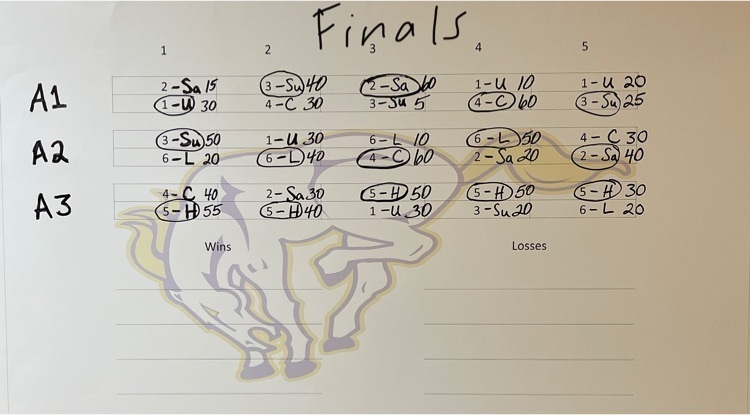 Finals
1 2 3 4 5
A1
2-Sa 15 3-Su 40 2-Sa 60 1-U 10 1-U 20
1-U 30 4-C 30 3-Su 5 4-C 60 3-Su 25
A2
3-Su 50 1-U 30 6-L 10 6-L 50 4-C 30
6-L 20 6-L 40 4-C 60 2-Sa 20 2-Sa 40
A3
4-C 40 2-Sa 30 5-H 50 5-H 50 5-H 30
5-H 55 5-H 40 1-U 30 3-Su 20 6-L 20
Wins Losses